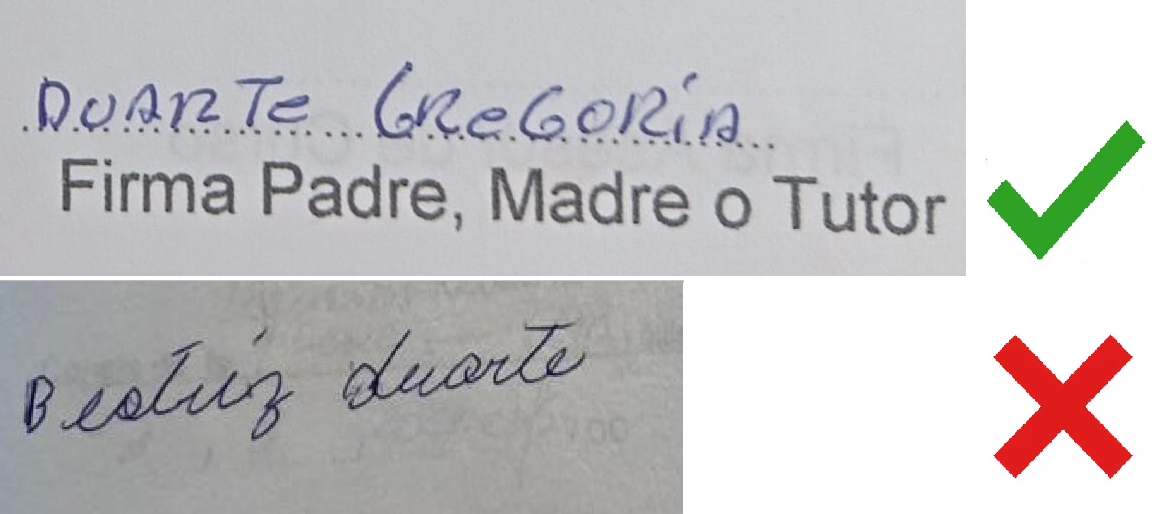 DUARTE GREGORIA
Firma Padre, Madre o Tutor
Beatriz duarte